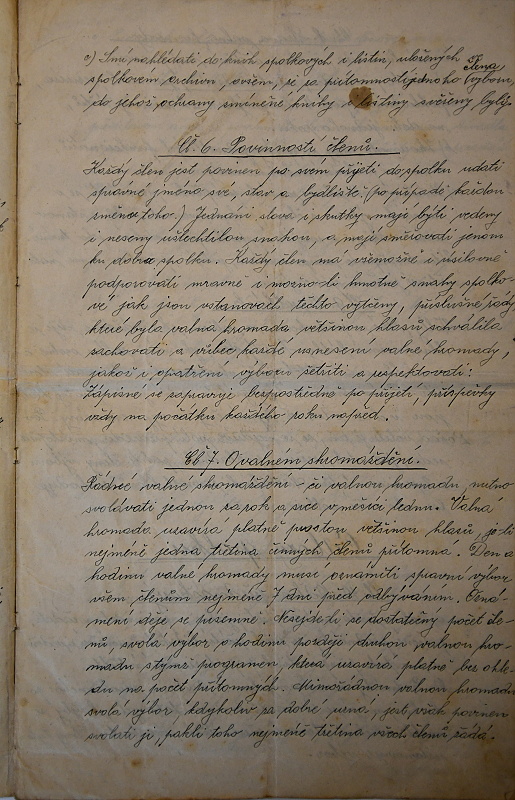 c) Smí nahlédati do knih spolkových i listin, uložených
spolkovém archivu, ovšem, že za přítomnosti jednoho člena výboru,
do jehož ochrany zmíněné knihy i listiny svěřeny byly.
Čl. 6. Povinnosti členů.
Každý člen jest povinen po svém přijetí do spolku udati
správné jméno své, stav a bydliště. (po případě každou
změnu toho.) Jednání slova i skutky mají býti vedeny
i neseny ušlechtilou snahou, a mají směřovati jenom
ku dobru spolku. Každý člen má všemožně i úsilovně
podporovati mravně i možno-li hmotně snahy spolko-
vé jak jsou v stanovách těchto vytčeny, příslušné řády,
které byla valná hromada většinou hlasů schválila
zachovati a vůbec každé usnesení valné hromady,
jakož i opatření výboru šetřiti a respektovati:
Zápisné se zapravuje bezprostředně po přijetí, příspěvky
vždy na počátku každého roku napřed.
Čl. 7. O valném shromáždění.
Řádné valné shromáždění - či valnou hromadu nutno
svolávati jednou za rok a sice v měsíci lednu. Valná
hromada uzavírá platně prostou většinou hlasů, je-li
nejméně jedna třetina činných členů přítomna. Den a
hodinu valné hromady musí oznámiti správní výbor
všem členům nejméně 7 dní před odbýváním. Ozná-
mení děje se písemně. Nesejde-li se dostatečný počet čle-
nů, svolá výbor o hodinu později druhou valnou hro-
madu s týmž programem, která uzavírá platně bez ohle-
du na počet přítomných. Mimořádnou valnou hromadu
svolá výbor, kdykoliv za dobré uzná, jest však povinen
svolati ji, pakli toho nejméně třetina všech členů žádá.